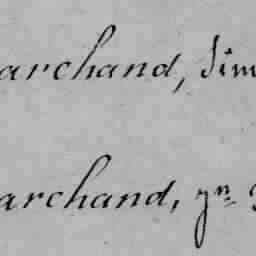 archand, Sim
archand, yn